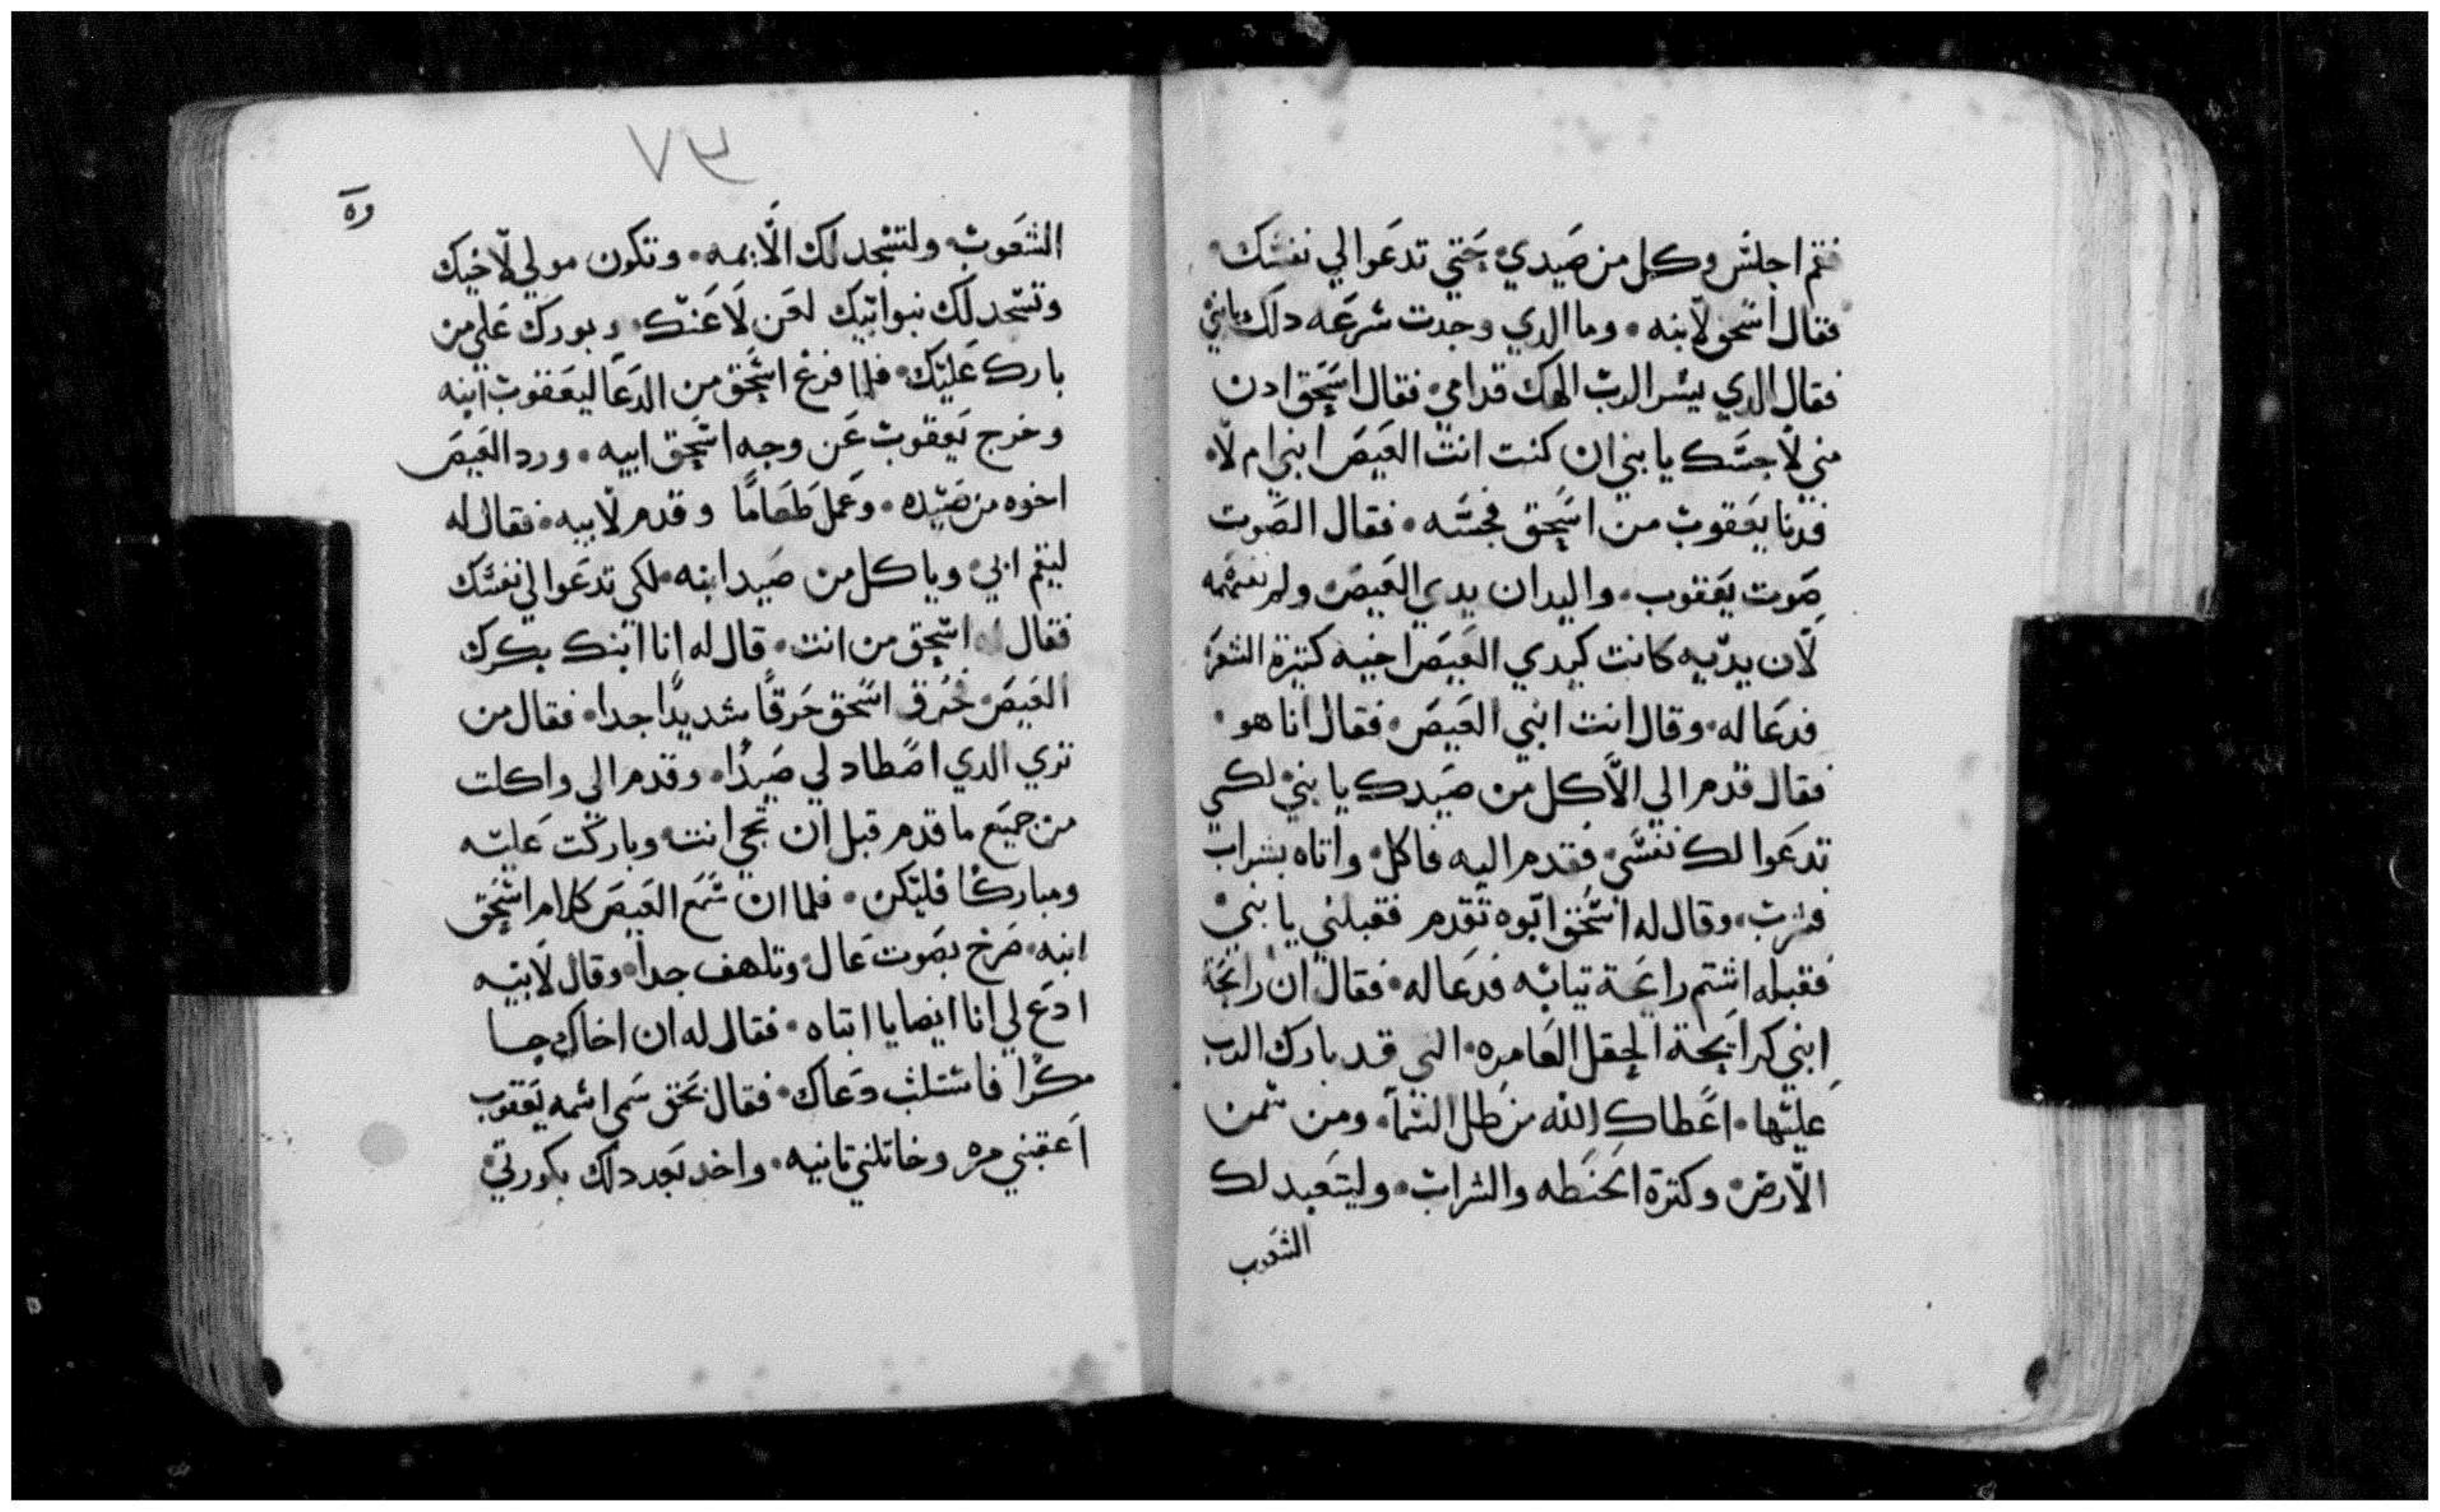 فقم اجلس وكل من صيدي حتي تدعوا لي نفسك
فقال اسحق لابنه وما الدي وجدت سرعه دلك يا بني
فقال الدي يسر الرب الهك قدامي فقال اسحق ادن
مني لاجسك يا بني ان كنت انت العيص ابني ام لا
فدنا يعقوب من اسحق فجسه فقال الصوت
صوت يعقوب واليدان يدي العيص ولم
لان يديه كانت كيدي العيص اخيه كتيرة الشعر
فدعا له وقال انت ابني العيص فقال انا هو
فقال قدم الي الاكل من صيدك يا بني لكي
تدعوا لك نفسي فقدم اليه فاكل واتاه بشراب
فشرب وقال له اسحق ابوه تقدم فقبلني يا بني
فقبله اشتم رايحة تيابه فدعا له فقال ان رايحة
ابني كرايحة الحقل العامره التي قد بارك الرب
عليها اعطاك الله من طل السمآ ومن سمن
الارض وكترة الحنطه والشراب وليتعبد لك
الشعوب
٦٧
الشعوب ولتسجد لك الايمه وتكون مولي لاخيك
وتسجد لك بنوا ابيك لعن لاعنك وبورك علي من
بارك عليك فلما فرغ اسحق من الدعا ليعقوب ابنه
وخرج يعقوب عن وجه اسحق ابيه ورد العيص
اخوه من صيده وعمل طعامًا وقدم لابيه فقال له
ليقم ابي وياكل من صيد ابنه لكي تدعوا لي نفسك
فقال له اسحق من انت قال له انا ابنك بكرك
العيص فحرق اسحق حرقًا شديدًا جدا فقال من
تري الدي اصطاد لي صيدًا وقدم الي واكلت
من جميع ما قدم قبل ان تجي انت وباركت عليه
ومباركًا فليكن فلما ان سمع العيص كلام اسحق
ابيه صرخ بصوت عال وتلهف جدا وقال لابيه
ادع لي انا ايضا يا ابتاه فقال له ان اخاك جا
مكرًا فاستلب دعاك فقال بحق سمي اسمه يعقوب
اعقبني مره وخاتلني تانيه واخد بعد دلك بكورتي